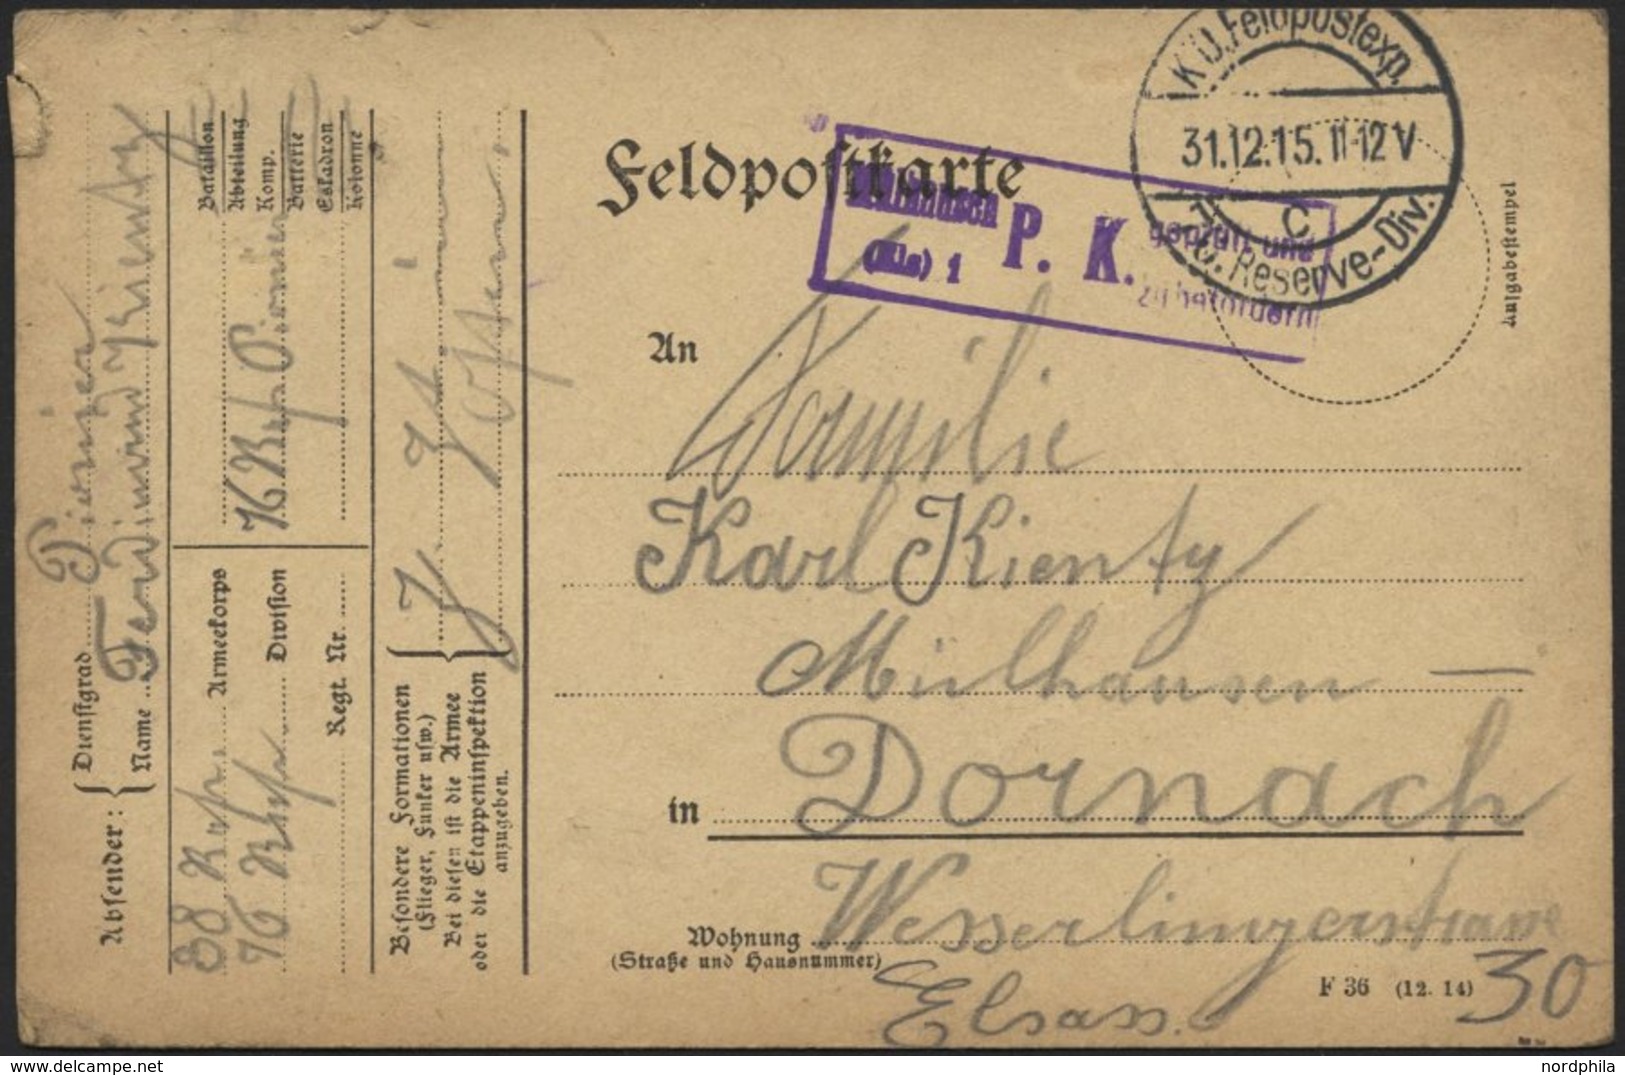 Feldpostkarte
K.D.Feldpostexp.
31.12.15.11-12V
c
76. Reserve-Div.
Mülhausen
(Els) 1
P. K.
geprüft und
zu befördern
Aufgabestempel
An
Familie
Karl Kientzy
Mülhausen —
in Dornach
Wohnung Wesserlingerstrasse
(Straße und Hausnummer)
30
Elsass.
F 36 (12. 14)
Absender:
Dienstgrad Pionier
Name Ferdinand Kientzy
Bataillon
Abteilung
Komp.
Batterie
Eskadron
Kolonne
76 Pionier
38 Armeekorps
76 Division
Regt. Nr.
Besondere Formationen
(Flieger, Funker usw.)
Bei diesen ist die Armee
oder die Etappeninspektion
anzugeben.
nordphila | delcampe.net